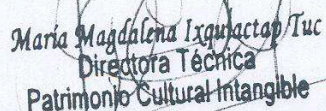 María Magdalena Ixquiactap Tuc
Directora Técnica
Patrimonio Cultural Intangible